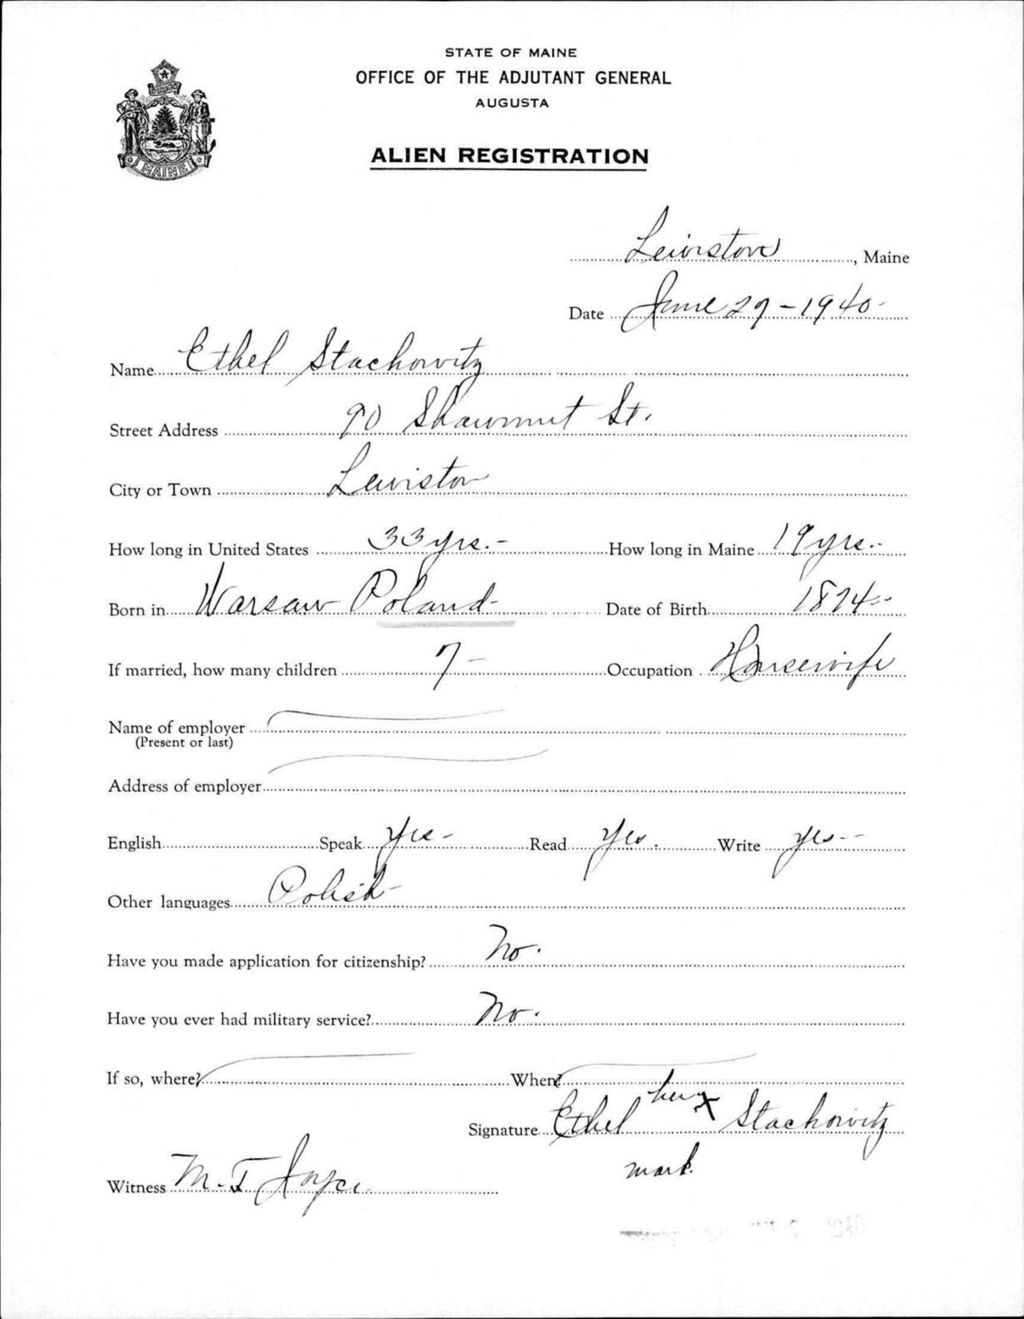 STATE OF MAINE
OFFICE OF THE ADJUTANT GENERAL
AUGUSTA
ALIEN REGISTRATION
MAINE
Lewiston, Maine
Date June 27-1940-
Name Ethel Stachowitz
Street Address 90 Shawmut St.
City or Town Lewiston
How long in United States 33 yrs.- How long in Maine 19 yrs.-
Born in Warsaw Poland- Date of Birth 1874-
If married, how many children 7- Occupation Housewife
Name of employer
(Present or last)
Address of employer
English Speak Yes- Read Yes. Write Yes-
Other languages Polish-
Have you made application for citizenship? No.
Have you ever had military service? No.
If so, where? When?
Signature Ethel her X Stachowitz
mark
Witness M. J. Joyce